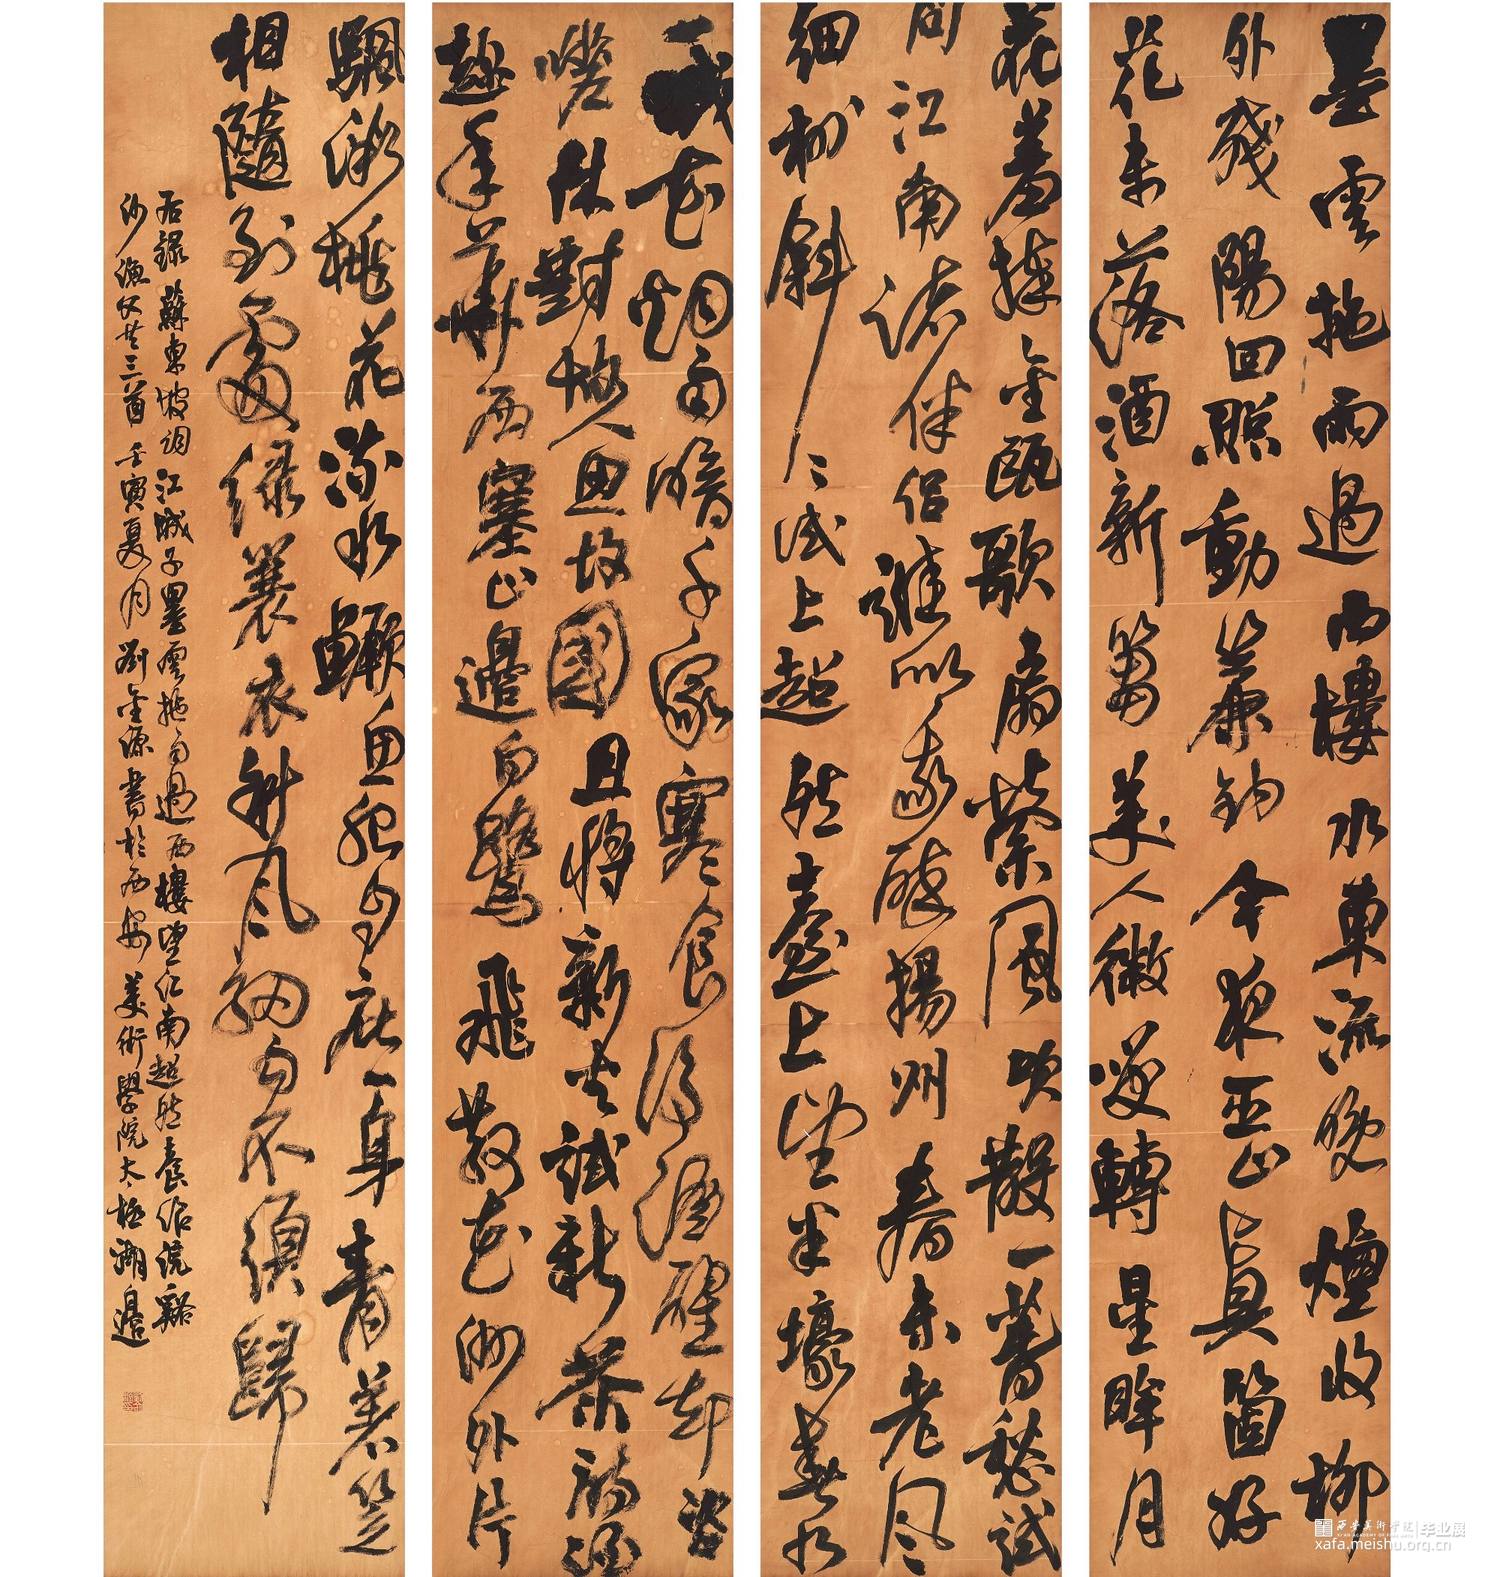 墨雲拖雨過西樓水東流晚煙收柳
外殘陽回照動簾鈎今夜巫山真箇好
花未落酒新篘美人微笑轉星眸月
花羞捧金甌歌扇縈風吹散一春愁試
問江南諸伴侶誰似我醉揚州春未老風
細柳斜〻試上超然臺上望半壕春水
一城花烟雨暗千家寒食後酒醒却咨
嗟休對故人思故國且將新火試新茶詩酒
趁年華西塞山邊白鷺飛散花洲外片
颿微桃花流水鱖魚肥自庇一身青箬笠
相隨到處綠蓑衣斜風細雨不須歸
右錄蘇東坡詞江城子墨雲拖雨過西樓望江南超然臺作浣谿
沙漁父共三首壬寅夏月劉金源書於西安美術學院太極湖邊
西安美術學院 毕业展
XI'AN ACADEMY OF FINE ARTS
xafa.meishu.org.cn